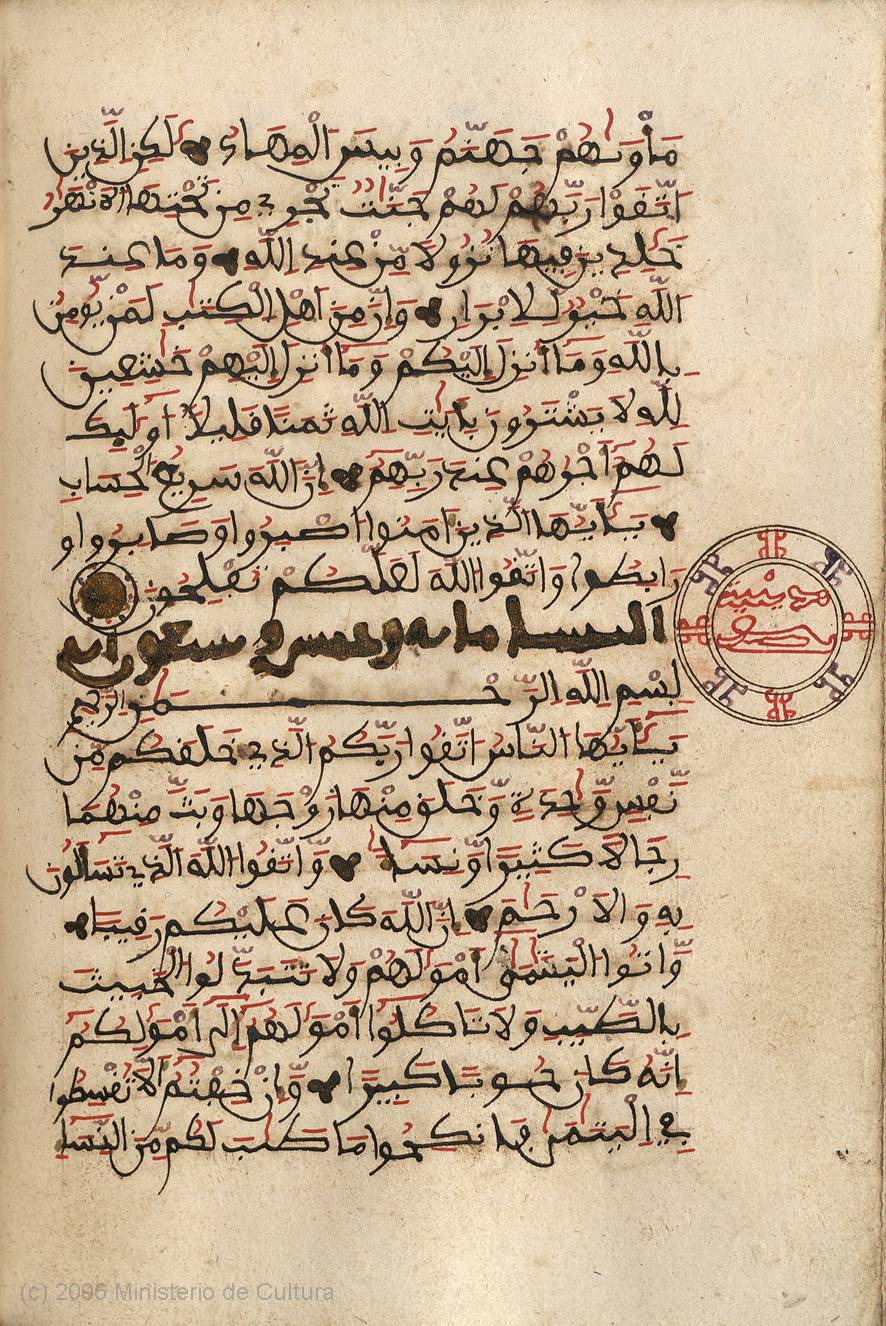 مَأْوَىٰهُمْ جَهَنَّمُ وَبِيسَ الْمِهَادُ لَٰكِنِ الَّذِينَ
اتَّقَوْا رَبَّهُمْ لَهُمْ جَنَّٰتٌ تَجْرِے مِن تَحْتِهَا الَانْهَٰرُ
خَٰلِدِينَ فِيهَا نُزُلًا مِّنْ عِندِ اللَّهِ وَمَا عِندَ
اللَّهِ خَيْرٌ لِّلَابْرَارِ وَإِنَّ مِنَ اهْلِ الْكِتَٰبِ لَمَنْ يُّومِنُ
بِاللَّهِ وَمَا أُنزِلَ إِلَيْكُمْ وَمَا أُنزِلَ إِلَيْهِمْ خَٰشِعِينَ
لِلَّهِ لَا يَشْتَرُونَ بِـَٔايَٰتِ اللَّهِ ثَمَنًا قَلِيلًا اوْلَٰئِكَ
لَهُمُ أَجْرُهُمْ عِندَ رَبِّهِمُ إِنَّ اللَّهَ سَرِيعُ الْحِسَابِ
يَٰأَيُّهَا الَّذِينَ ءَامَنُوا اصْبِرُوا وَصَابِرُوا وَ
رَابِطُوا وَاتَّقُوا اللَّهَ لَعَلَّكُمْ تُفْلِحُونَ
النسا مايه وخمس وسبعون ايه
مدينية
بِسْمِ اللَّهِ الرَّحْمَٰنِ الرَّحِيمِ
يَٰأَيُّهَا النَّاسُ اتَّقُوا رَبَّكُمُ الَّذِے خَلَقَكُم مِّن
نَّفْسٍ وَّٰحِدَةٍ وَّخَلَقَ مِنْهَا زَوْجَهَا وَبَثَّ مِنْهُمَا
رِجَالًا كَثِيرًا وَّنِسَاءً وَّاتَّقُوا اللَّهَ الَّذِے تَسَّاءَلُونَ
بِهِ وَالَارْحَامَ إِنَّ اللَّهَ كَانَ عَلَيْكُمْ رَقِيبًا
وَّءَاتُوا الْيَتَٰمَىٰ أَمْوَٰلَهُمْ وَلَا تَتَبَدَّلُوا الْخَبِيثَ
بِالطَّيِّبِ وَلَا تَاكُلُوا أَمْوَٰلَهُمُ إِلَىٰ أَمْوَٰلِكُمُ
إِنَّهُ كَانَ حُوبًا كَبِيرًا وَّإِنْ خِفْتُمُ أَلَّا تُقْسِطُوا
فِے الْيَتَٰمَىٰ فَانكِحُوا مَا طَابَ لَكُم مِّنَ النِّسَاءِ
(c) 2006 Ministerio de Cultura